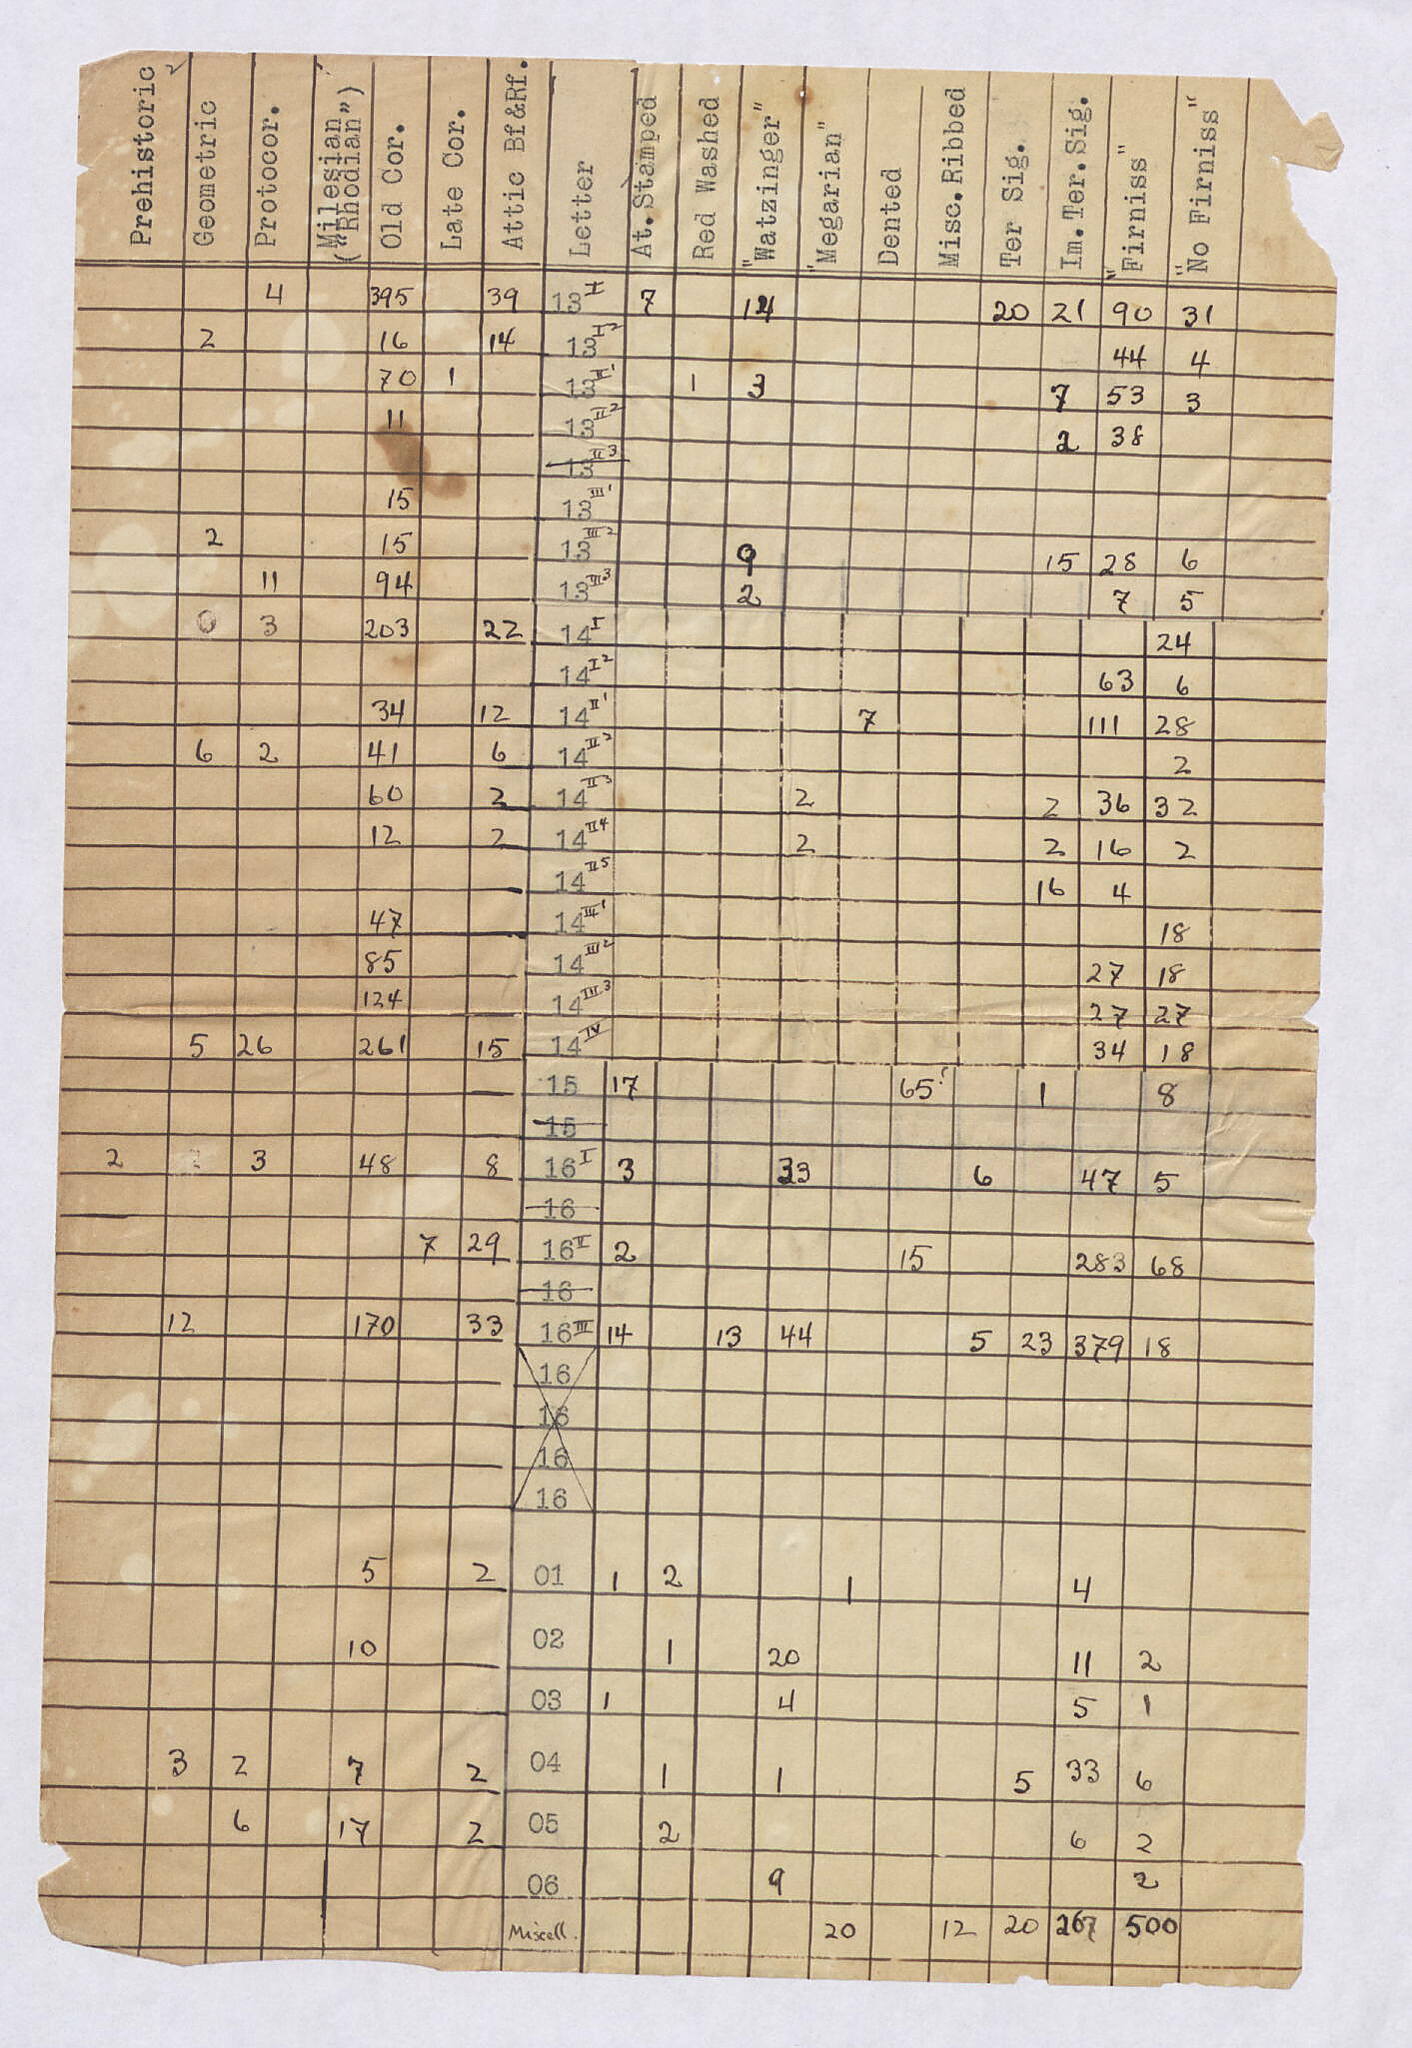 Prehistoric Geometric Protocor. Milesian ("Rhodian") Old Cor. Late Cor. Attic Bf&Rf. Letter At.Stamped Red Washed "Watzinger" "Megarian" Dented Misc.Ribbed Ter Sig. Im.Ter.Sig. "Firniss" "No Firniss"
4 395 39 13 I 7 14 20 21 90 31
2 16 14 13 I 2 44 4
70 1 13 II 1 1 3 7 53 3
11 13 II 2 2 38
13 II 3
15 13 III 1
2 15 13 III 2 9 15 28 6
11 94 13 III 3 2 7 5
3 203 22 14 I 24
14 I 2 63 6
34 12 14 II 1 7 111 28
6 2 41 6 14 II 2 2
60 2 14 II 3 2 2 36 32
12 2 14 II 4 2 2 16 2
14 II 5 16 4
47 14 III 1 18
85 14 III 2 27 18
124 14 III 3 27 27
5 26 261 15 14 IV 34 18
15 17 65? 1 8
15
2 3 48 8 16 I 3 33 6 47 5
16
7 29 16 II 2 15 283 68
16
12 170 33 16 III 14 13 44 5 23 379 18
16
16
16
16
5 2 01 1 2 1 4
10 02 1 20 11 2
03 1 4 5 1
3 2 7 2 04 1 1 5 33 6
6 17 2 05 2 6 2
06 9 2
Miscell. 20 12 20 267 500